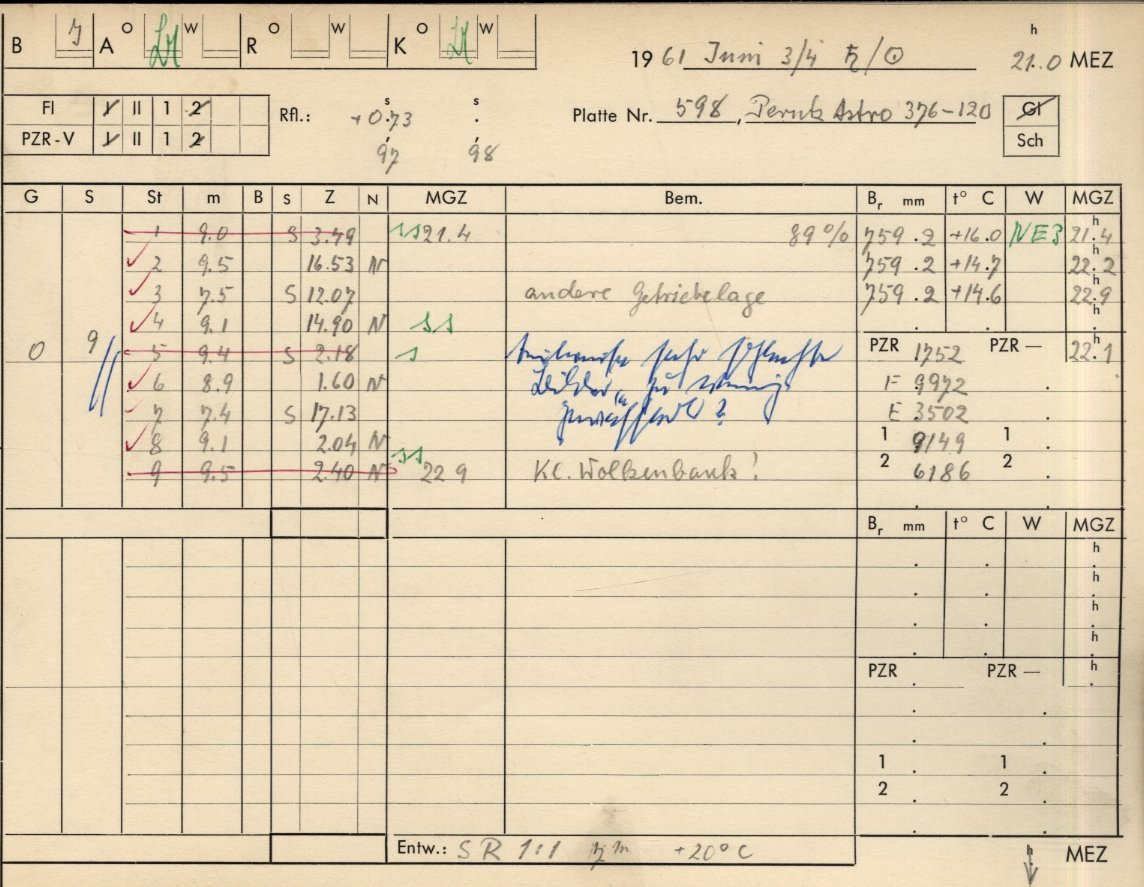 B J A O W R O W K O W
1961 Juni 3/4 ♄/☉ 21.0 h MEZ
Fl I II 1 2
PZR-V I II 1 2
Rfl.: +0.73 s s .
97 98
Platte Nr. 598, Perutz Astro 376-120
Gl
Sch
G S St m B S Z N MGZ Bem. Br mm t° C W MGZ
1 9.0 S 3.79 ss 21.4 89% 759.2 +16.0 NE3 21.4 h
2 9.5 16.53 N 759.2 +14.7 22.2 h
3 7.5 S 12.07 andere Getriebelage 759.2 +14.6 22.9 h
4 9.1 14.90 N ss
0 9 5 9.4 S 2.18 s PZR 1752 PZR — 22.1 h
6 8.9 1.60 N F 9972
7 7.4 S 17.13 E 3502
8 9.1 2.04 N 1 9149 1
ss
9 9.5 2.40 N 22.9 Kl. Wolkenbank! 2 6186 2
Br mm t° C W MGZ
h
h
h
h
PZR PZR — h
1 1
2 2
Entw.: SR 1:1 7 m +20°C
h MEZ